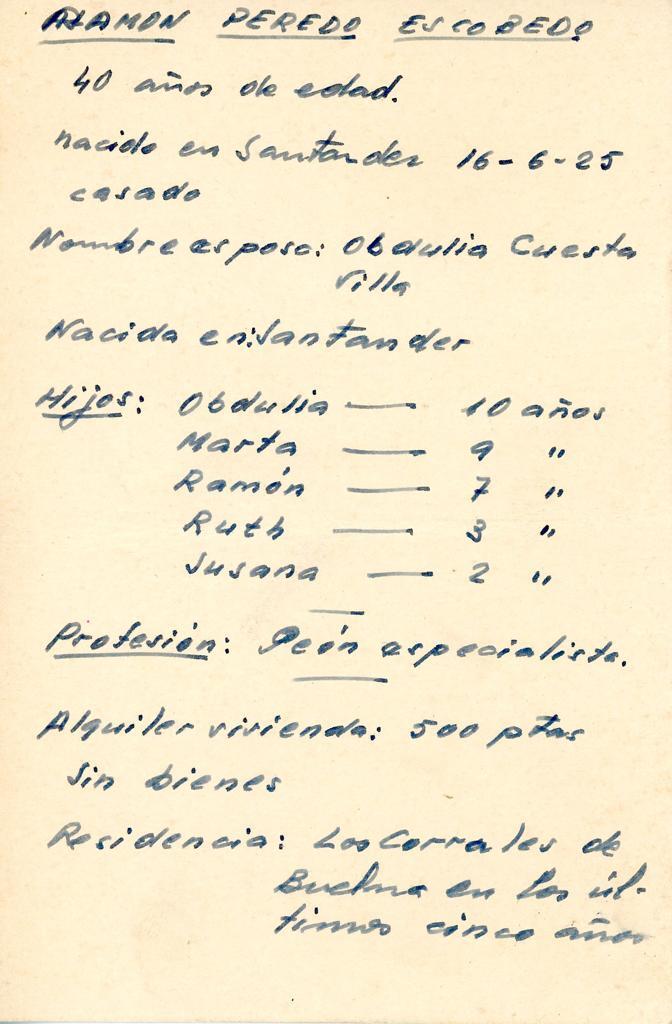 RAMON PEREDO ESCOBEDO
40 años de edad.
nacido en Santander 16-6-25
casado
Nombre esposa: Obdulia Cuesta
Villa
Nacida en: Santander
Hijos: Obdulia — 10 años
Marta — 9 "
Ramón — 7 "
Ruth — 3 "
Susana — 2 "
Profesión: Peón especialista.
Alquiler vivienda: 500 ptas
Sin bienes
Residencia: Los Corrales de
Buelna en los úl-
timos cinco años